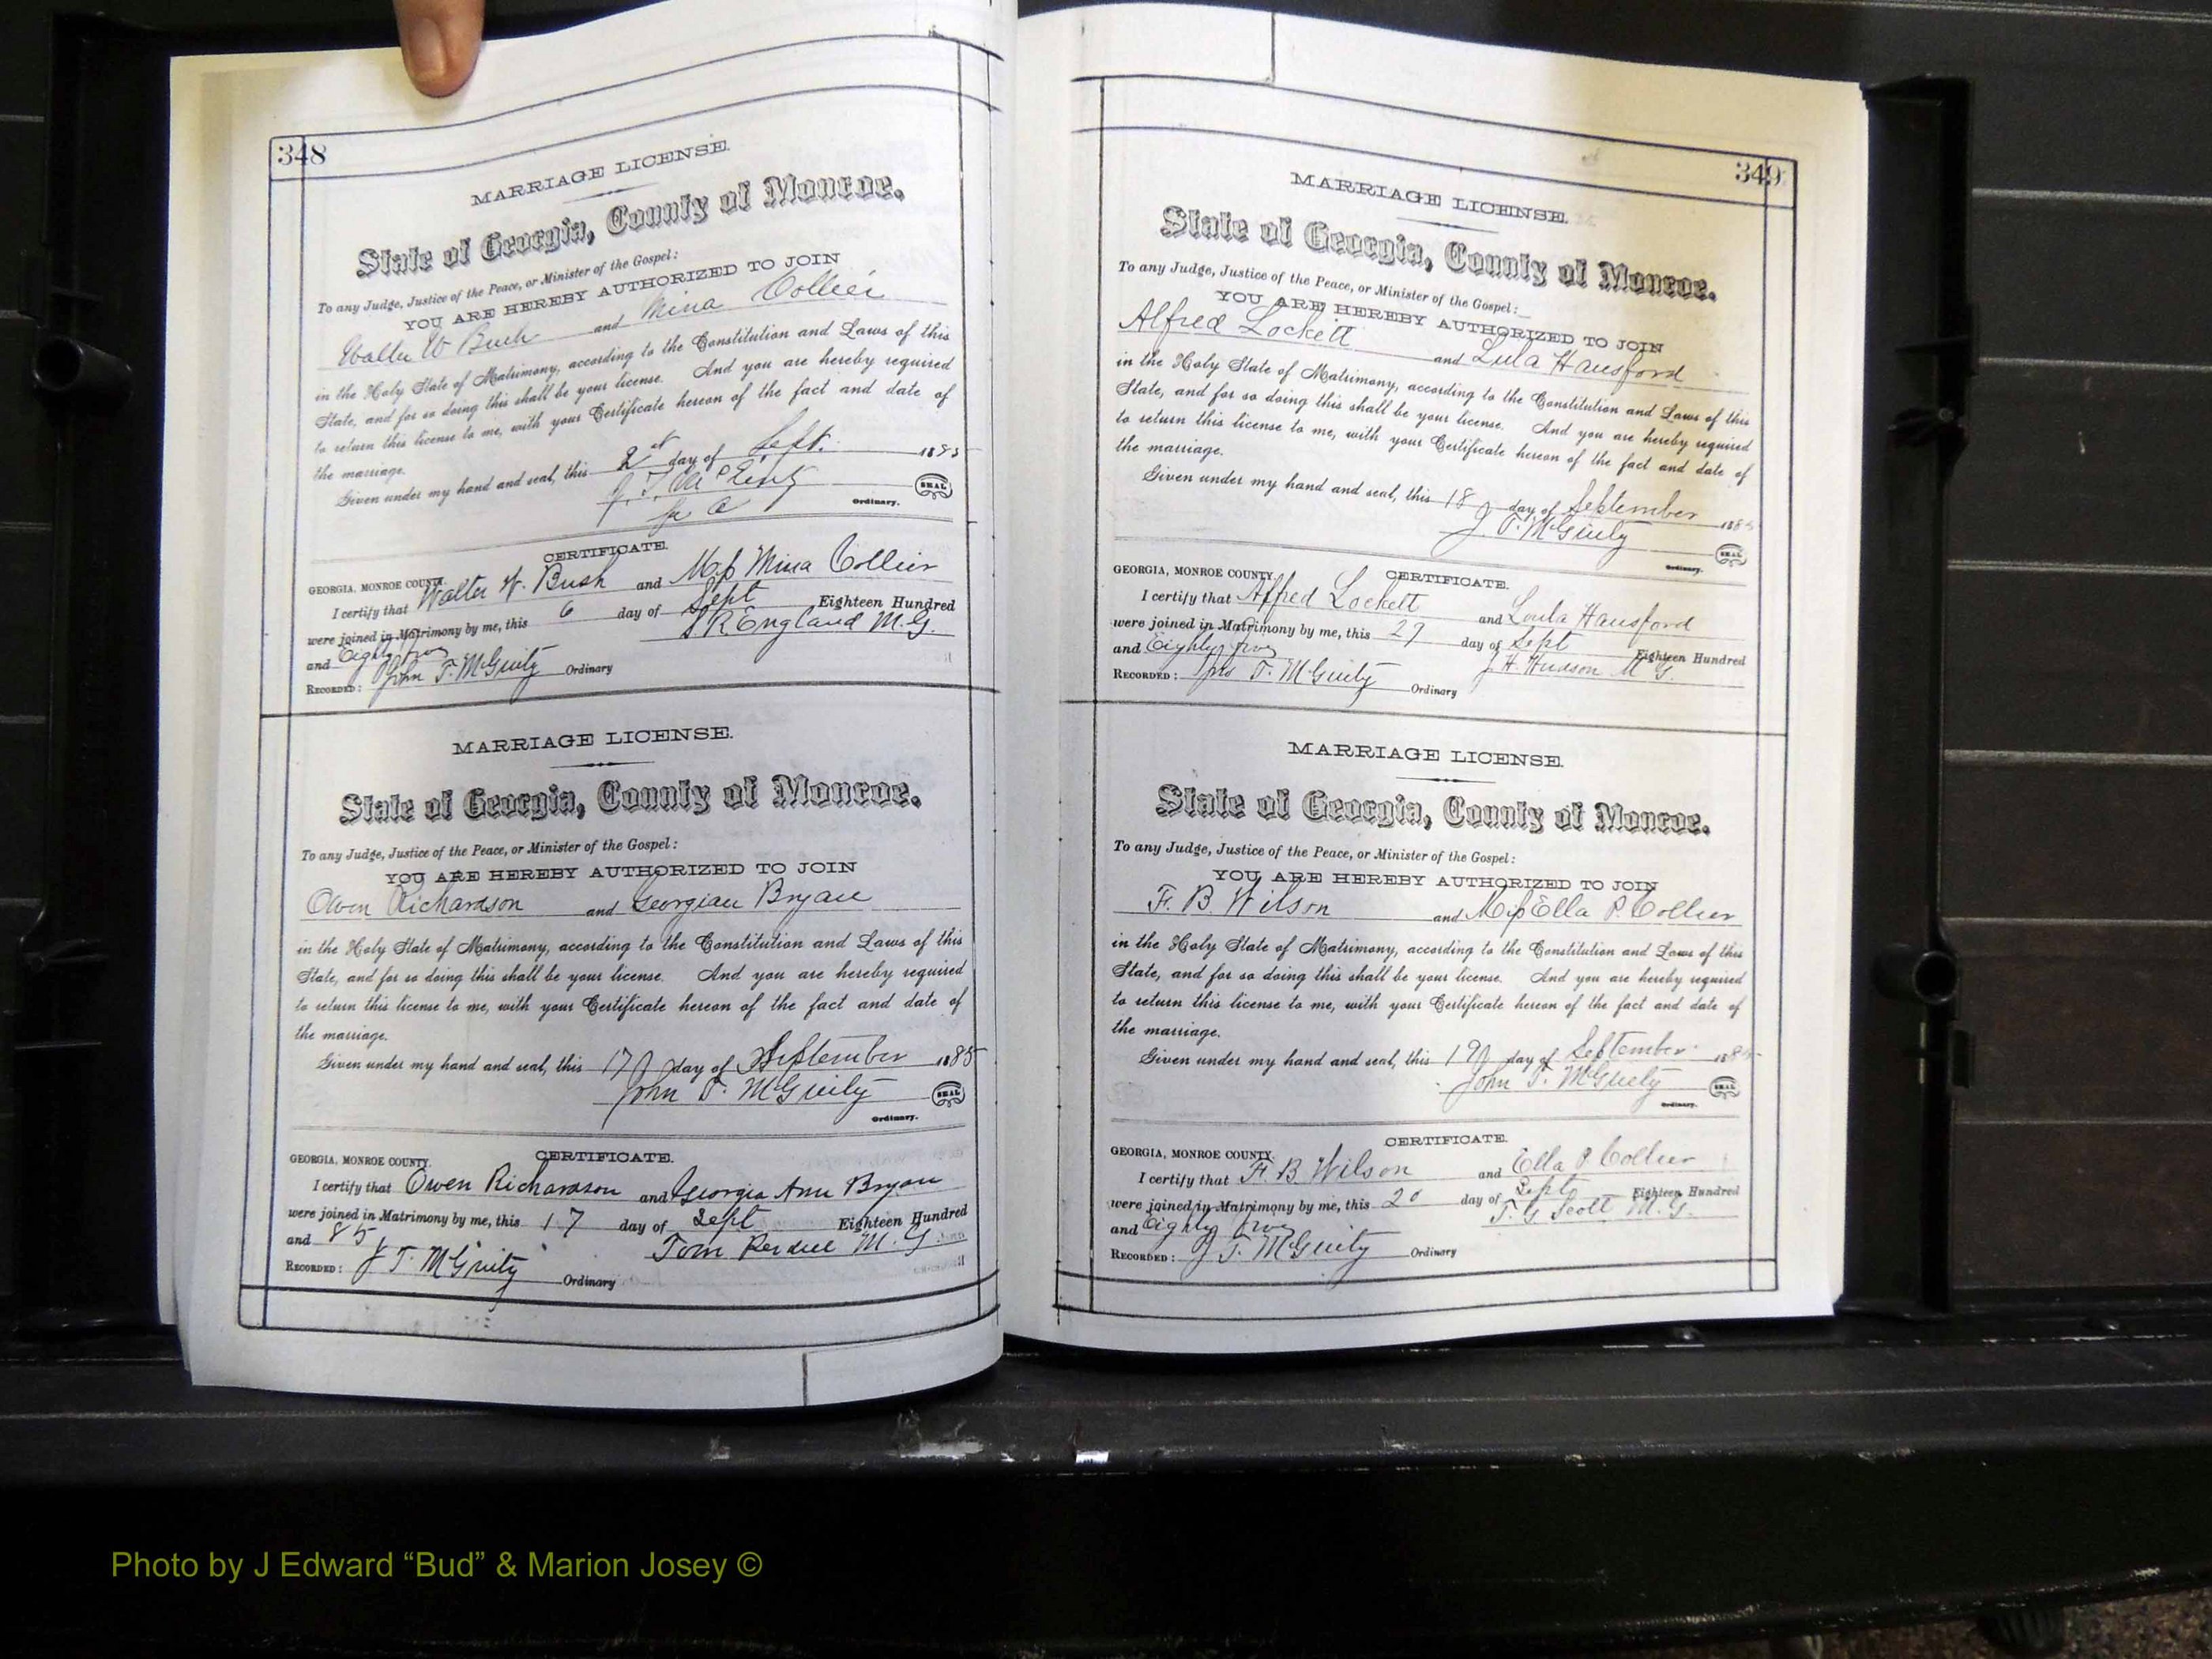 348
MARRIAGE LICENSE.
State of Georgia, County of Monroe.
To any Judge, Justice of the Peace, or Minister of the Gospel:
YOU ARE HEREBY AUTHORIZED TO JOIN
Walter W Bush and Mina Collier
in the Holy State of Matrimony, according to the Constitution and Laws of this
State, and for so doing this shall be your license. And you are hereby required
to return this license to me, with your Certificate hereon of the fact and date of
the marriage.
Given under my hand and seal, this 2 day of Sept. 188
SEAL
Ordinary.
CERTIFICATE.
GEORGIA, MONROE COUNTY.
I certify that Walter W. Bush and Miss Mina Collier
were joined in Matrimony by me, this 6 day of Sept Eighteen Hundred
and Eighty five England M.G.
RECORDED: John T. McGinty Ordinary
MARRIAGE LICENSE.
State of Georgia, County of Monroe.
To any Judge, Justice of the Peace, or Minister of the Gospel:
YOU ARE HEREBY AUTHORIZED TO JOIN
Owen Richardson and Georgian Bryan
in the Holy State of Matrimony, according to the Constitution and Laws of this
State, and for so doing this shall be your license. And you are hereby required
to return this license to me, with your Certificate hereon of the fact and date of
the marriage.
Given under my hand and seal, this 17 day of September 1885
John T. McGinty
SEAL
Ordinary.
CERTIFICATE.
GEORGIA, MONROE COUNTY.
I certify that Owen Richardson and Georgia Ann Bryan
were joined in Matrimony by me, this 17 day of Sept Eighteen Hundred
and 85, Tom Perdue M.G.
RECORDED: J T. McGinty Ordinary
349
MARRIAGE LICENSE.
State of Georgia, County of Monroe.
To any Judge, Justice of the Peace, or Minister of the Gospel:
YOU ARE HEREBY AUTHORIZED TO JOIN
Alfred Lockett and Lula Hansford
in the Holy State of Matrimony, according to the Constitution and Laws of this
State, and for so doing this shall be your license. And you are hereby required
to return this license to me, with your Certificate hereon of the fact and date of
the marriage.
Given under my hand and seal, this 18 day of September 1885
J. T. McGinty
SEAL
Ordinary.
CERTIFICATE.
GEORGIA, MONROE COUNTY.
I certify that Alfred Lockett and Loula Hansford
were joined in Matrimony by me, this 27 day of Sept Eighteen Hundred
and Eighty five J. H. Hudson M G.
RECORDED: Jno T. McGinty Ordinary
MARRIAGE LICENSE.
State of Georgia, County of Monroe.
To any Judge, Justice of the Peace, or Minister of the Gospel:
YOU ARE HEREBY AUTHORIZED TO JOIN
F. B. Wilson and Miss Ella P. Collier
in the Holy State of Matrimony, according to the Constitution and Laws of this
State, and for so doing this shall be your license. And you are hereby required
to return this license to me, with your Certificate hereon of the fact and date of
the marriage.
Given under my hand and seal, this 19 day of September 1885
John T. McGinty
SEAL
Ordinary.
CERTIFICATE.
GEORGIA, MONROE COUNTY.
I certify that F. B Wilson and Ella P. Collier
were joined in Matrimony by me, this 20 day of Sept Eighteen Hundred
and Eighty five T. G Scott M.G.
RECORDED: J T. McGinty Ordinary
Photo by J Edward “Bud” & Marion Josey ©